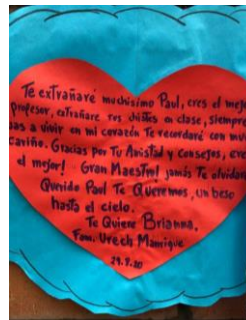 Te extrañaré muchísimo Paul, eres el mejor
profesor, extrañare tus chistes en clase, siempre
vas a vivir en mi corazón Te recordaré con mu
cariño. Gracias por Tu Amistad y consejos, er
el mejor! Gran Maestro! jamás Te olvida
Querido Paul Te Queremos, un beso
hasta el cielo.
Te Quiere Brianna.
Fam. Urech Manrique
29.9.20